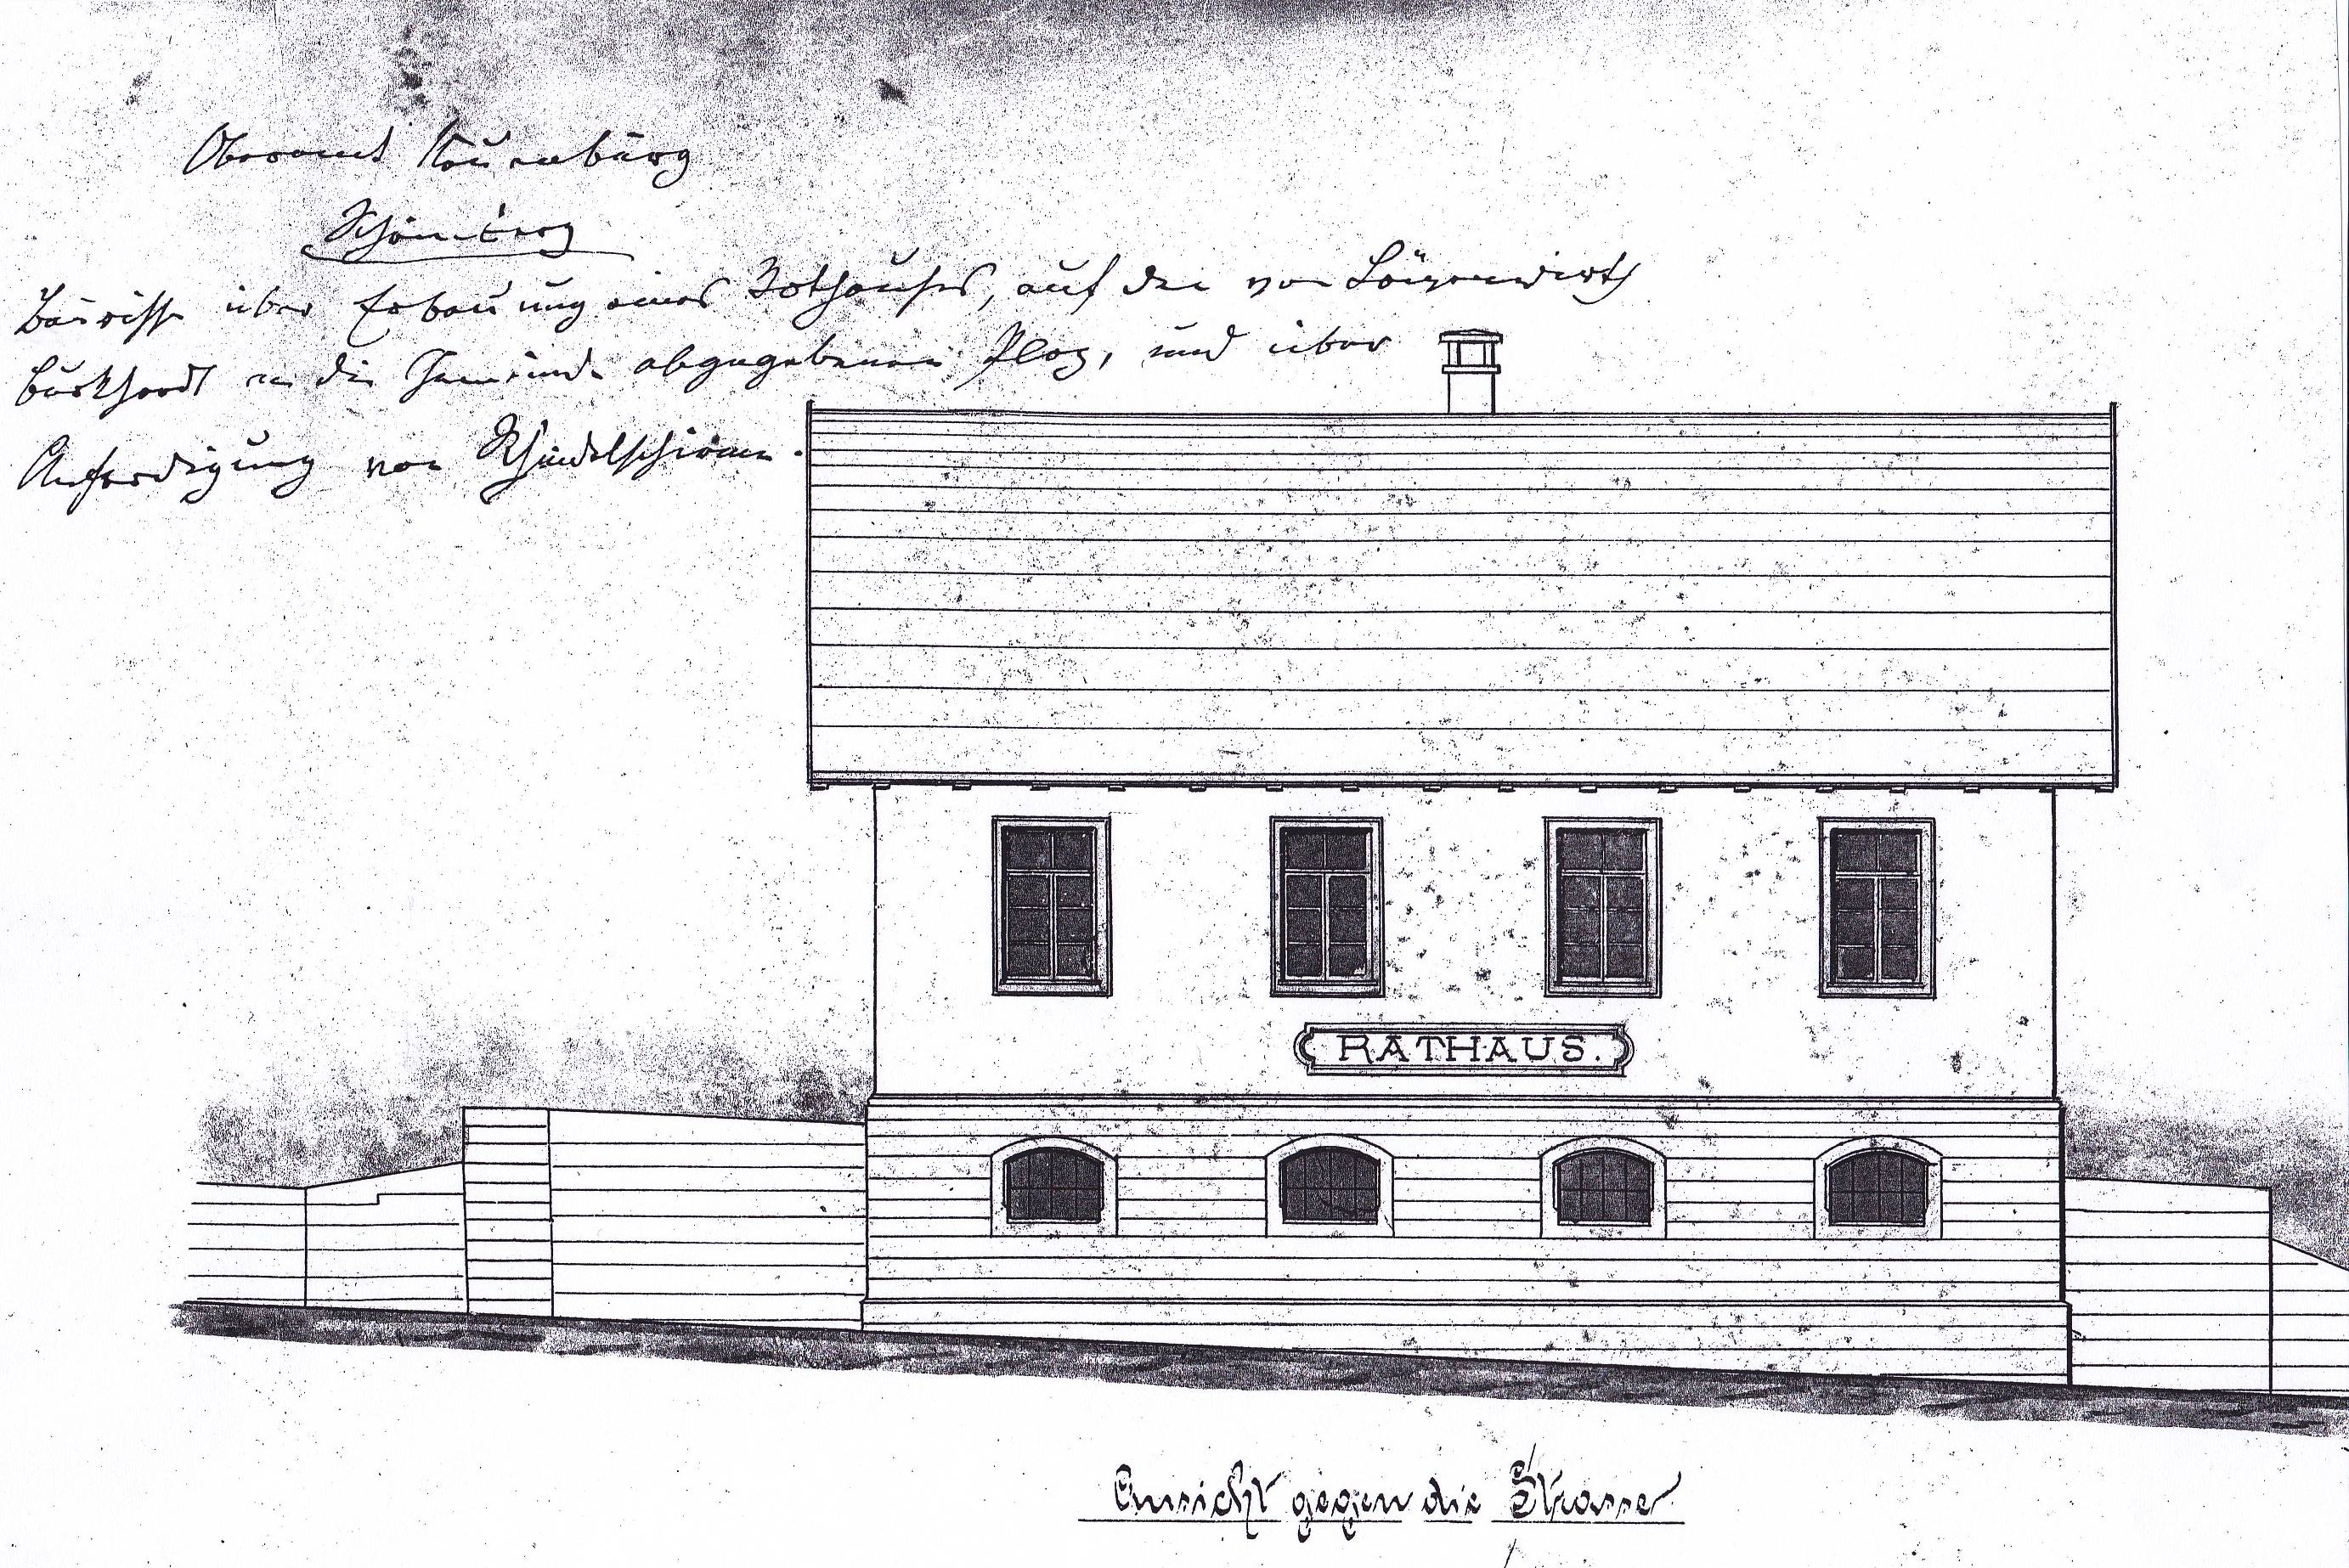 Oberamt Neuenbürg
Schömberg
Baurisse über Erbauung eines Rathauses, auf den von Löwenwirth
Burkhardt an die Gemeinde abgegebenen Plaz, und über
Anferdigung von Schindelschirm.
RATHAUS.
Ansicht gegen die Strasse